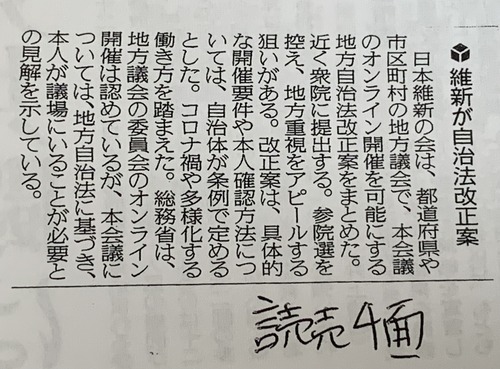 維新が自治法改正案
日本維新の会は、都道府県や
市区町村の地方議会で、本会議
のオンライン開催を可能にする
地方自治法改正案をまとめた。
近く衆院に提出する。参院選を
控え、地方重視をアピールする
狙いがある。改正案は、具体的
な開催要件や本人確認方法につ
いては、自治体が条例で定める
とした。コロナ禍や多様化する
働き方を踏まえた。総務省は、
地方議会の委員会のオンライン
開催は認めているが、本会議に
ついては、地方自治法に基づき、
本人が議場にいることが必要と
の見解を示している。
読売4面